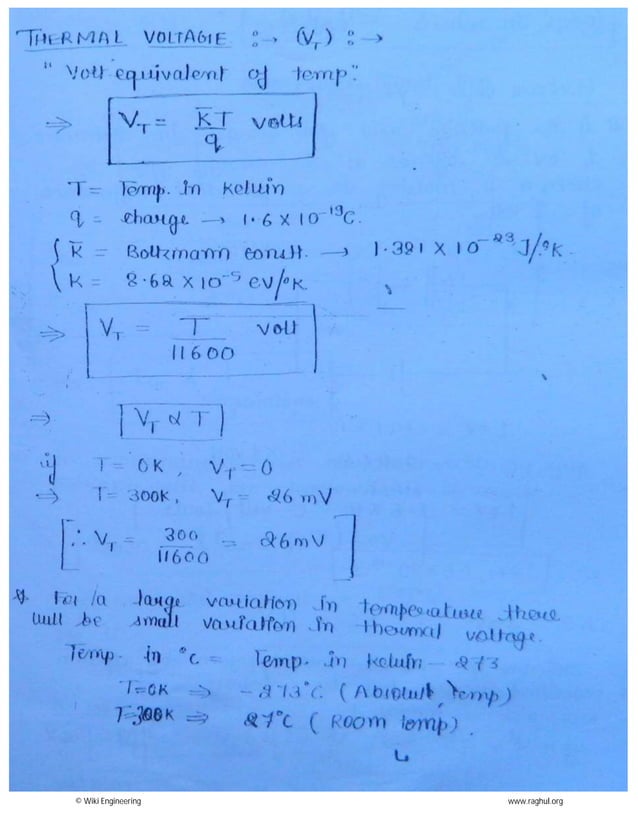 THERMAL VOLTAGE :→ (V_T) :→
"Volt equivalent of temp."
⇒ V_T = K̄T/q volts
T = Temp. in kelvin
q = charge → 1.6 X 10⁻¹⁹C.
K̄ = Boltzmann constt. → 1.381 X 10⁻²³ J/°K.
K = 8.62 X 10⁻⁵ eV/°K
⇒ V_T = T/11600 volt
⇒ V_T ∝ T
if T = 0K, V_T = 0
⇒ T = 300K, V_T = 26 mV
[∴ V_T = 300/11600 = 26mV]
For a large variation in temperature there
will be small variation in thermal voltage.
Temp. in °c = Temp. in kelvin – 273
T=0K ⇒ –273°C (Absolute temp)
T=300K ⇒ 27°C (Room temp).
© Wiki Engineering
www.raghul.org